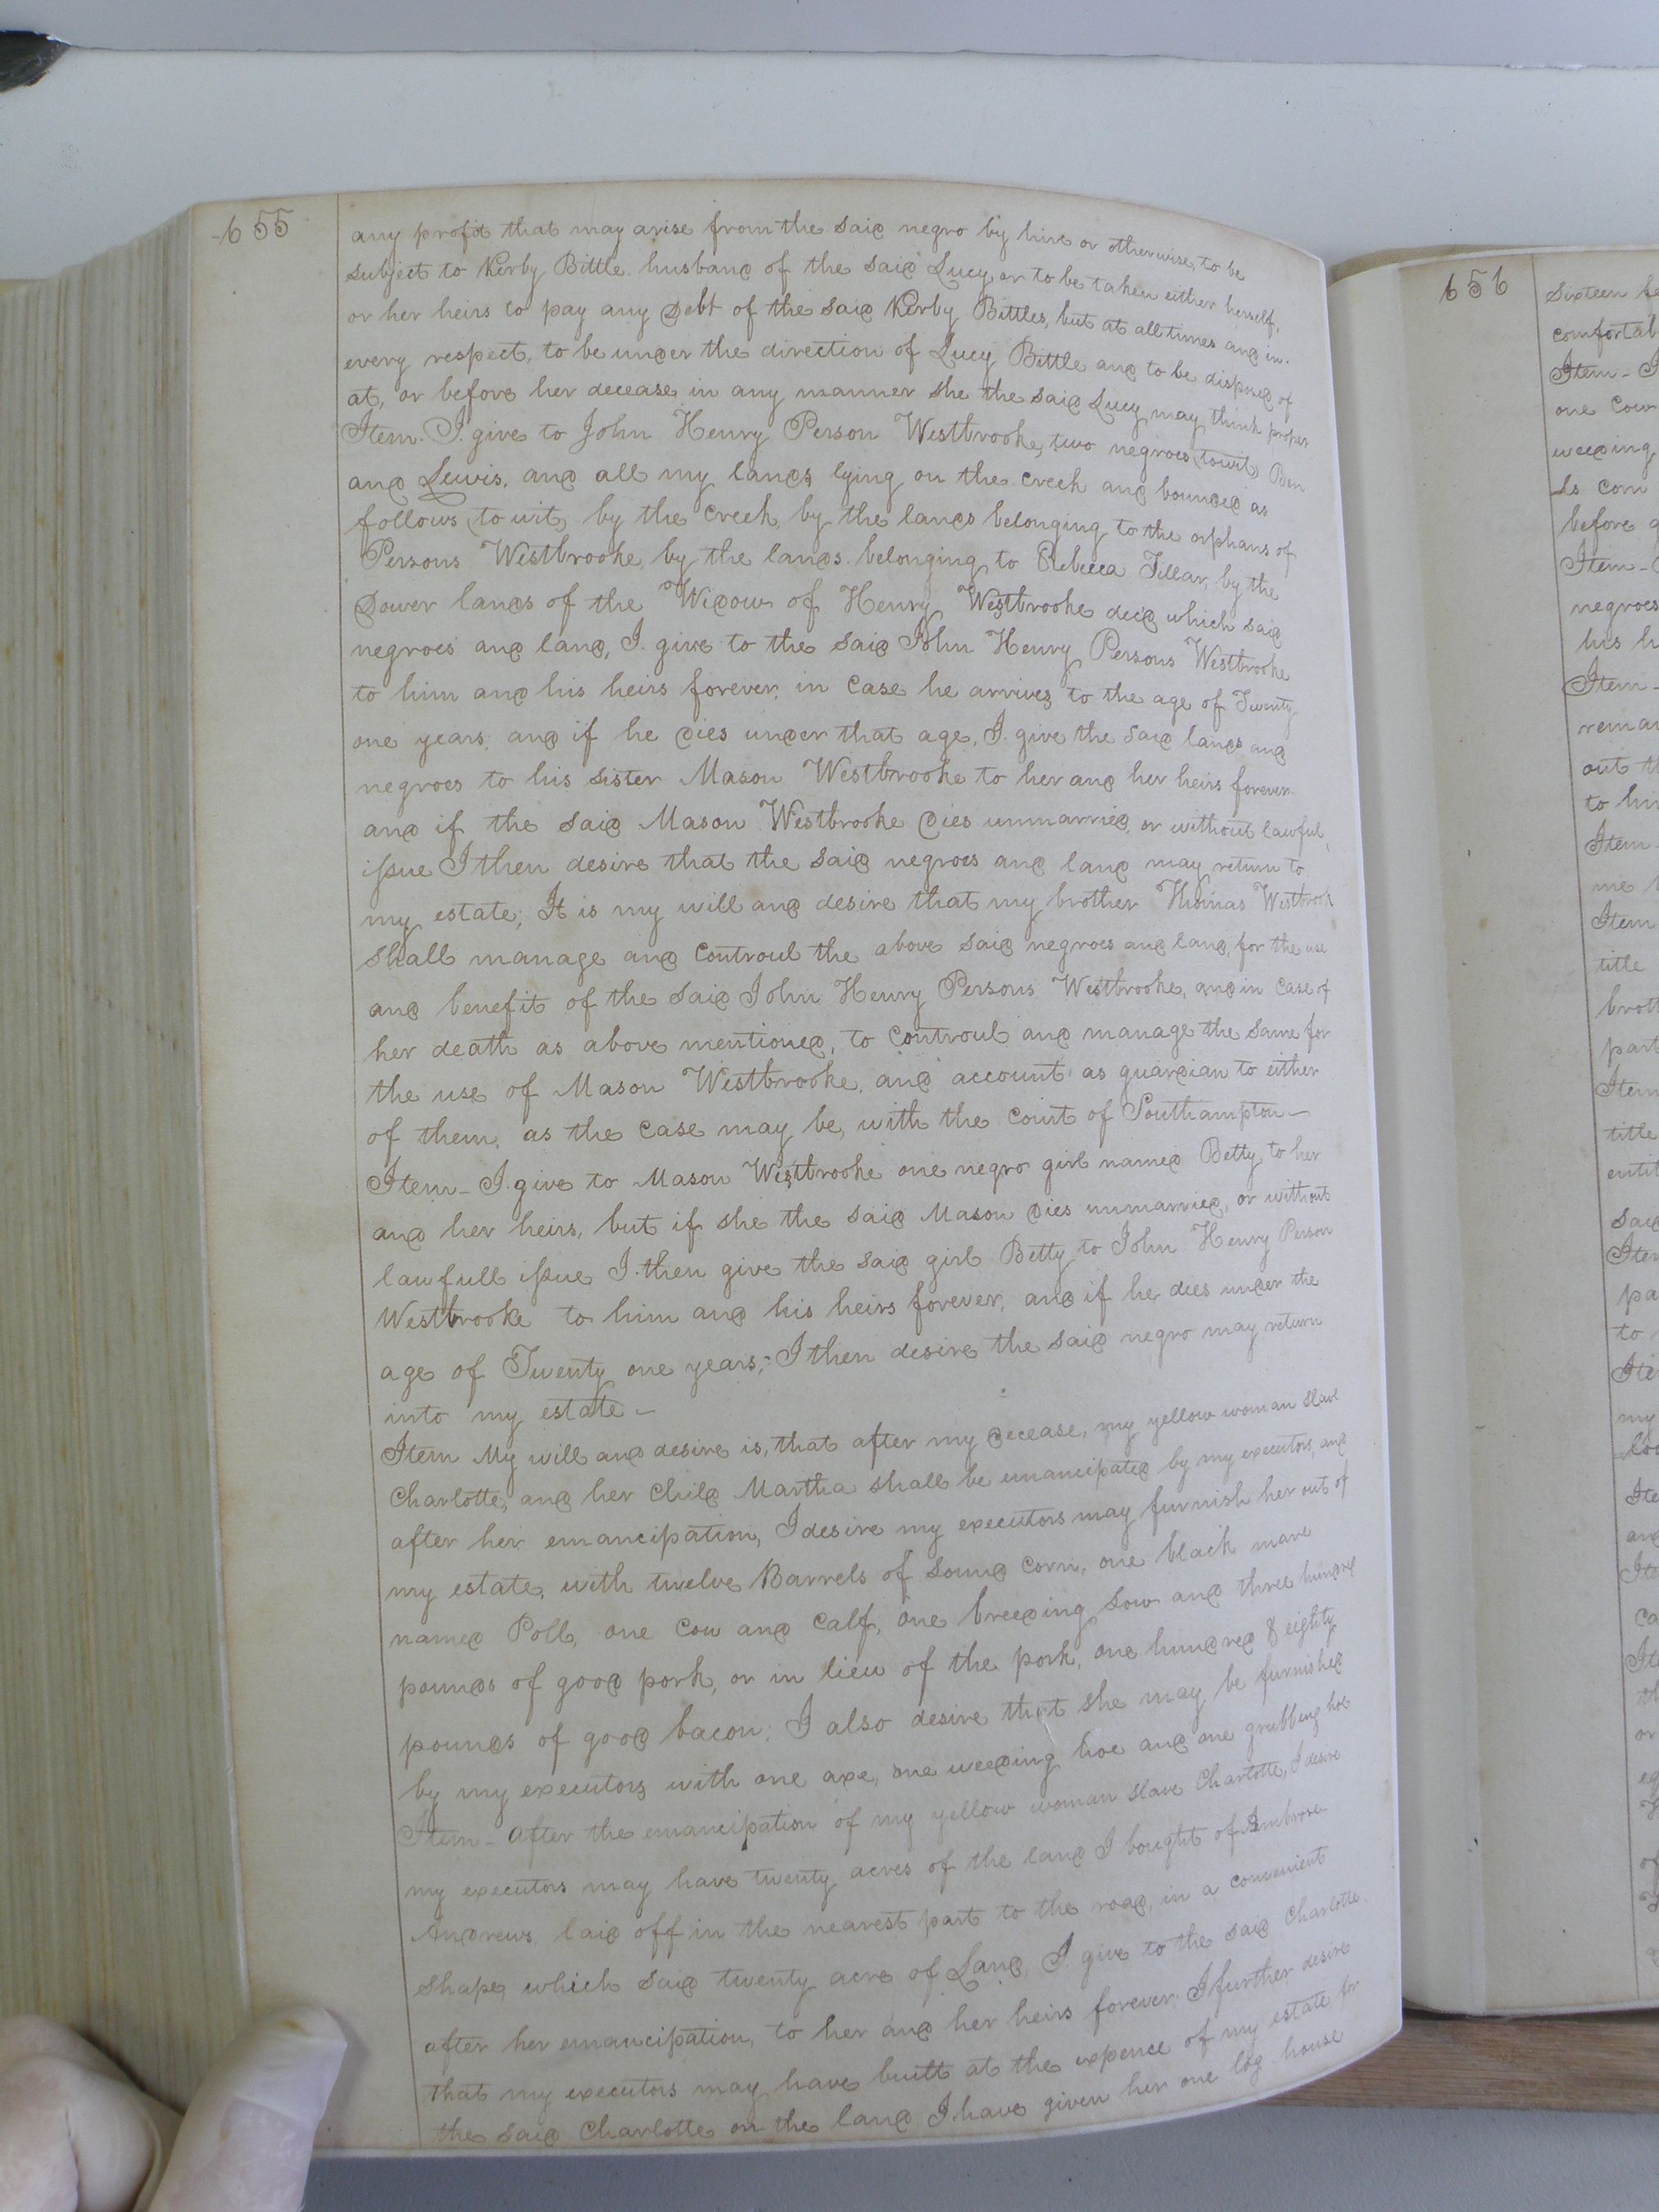 655
any profit that may arise from the said negro by hire or otherwise, to be
subject to Kerby Bittle husband of the said Lucy, or to be taken either herself,
or her heirs to pay any Debt of the said Kerby Bittles, but at all times and in
every respect, to be under the direction of Lucy Bittle and to be disposed of
at, or before her decease in any manner she the said Lucy may think proper
Item. I give to John Henry Person Westbrooke, two negroes (towit) Ben
and Lewis, and all my lands lying on the creek and bounded as
follows (to wit) by the creek, by the lands belonging to the orphans of
Persons Westbrooke, by the lands belonging to Rebecca Fillar, by the
Dower lands of the Widow of Henry Westbrooke decd which said
negroes and land, I give to the said John Henry Persons Westbrooke
to him and his heirs forever, in case he arrives to the age of Twenty
one years; and if he dies under that age, I give the said lands and
negroes to his sister Mason Westbrooke to her and her heirs forever
and if the said Mason Westbrooke dies unmarried, or without lawful,
issue I then desire that the said negroes and land may return to
my estate; It is my will and desire that my brother Thomas Westbrook
shall manage and controul the above said negroes and land, for the use
and benefit of the said John Henry Persons Westbrooke, and in case of
her death as above mentioned, to controul and manage the same for
the use of Mason Westbrooke, and account as guardian to either
of them, as the case may be, with the court of Southampton -
Item - I give to Mason Westbrooke one negro girl named Betty, to her
and her heirs, but if she the said Mason dies unmarried, or without
lawfull issue I then give the said girl Betty to John Henry Person
Westbrooke to him and his heirs forever, and if he dies under the
age of Twenty one years; I then desire the said negro may return
into my estate -
Item My will and desire is, that after my decease, my yellow woman slave
Charlotte, and her child Martha shall be emancipated by my executors, and
after her emancipation, I desire my executors may furnish her out of
my estate, with twelve Barrels of sound corn, one black mare
named Poll, one Cow and Calf, one breeding sow and three hundred
pounds of good pork, or in lieu of the pork, one hundred & eighty
pounds of good bacon; I also desire that she may be furnished
by my executors with one axe, one weeding hoe and one grubbing hoe
Item - After the emancipation of my yellow woman slave Charlotte, I desire
my executors may have twenty acres of the land I bought of Ambrose
Andrews, laid off in the nearest part to the road, in a convenient
shape, which said twenty acre of Land, I give to the said Charlotte
after her emancipation, to her and her heirs forever. I further desire
that my executors may have built at the expence of my estate for
the said Charlotte on the land I have given her one log house
656
Sixteen
Item - I
one Cow
weeding
before
Item -
negroes
his h
Item -
out
to him
Item -
me
Item
title
Item
title
said
to
my